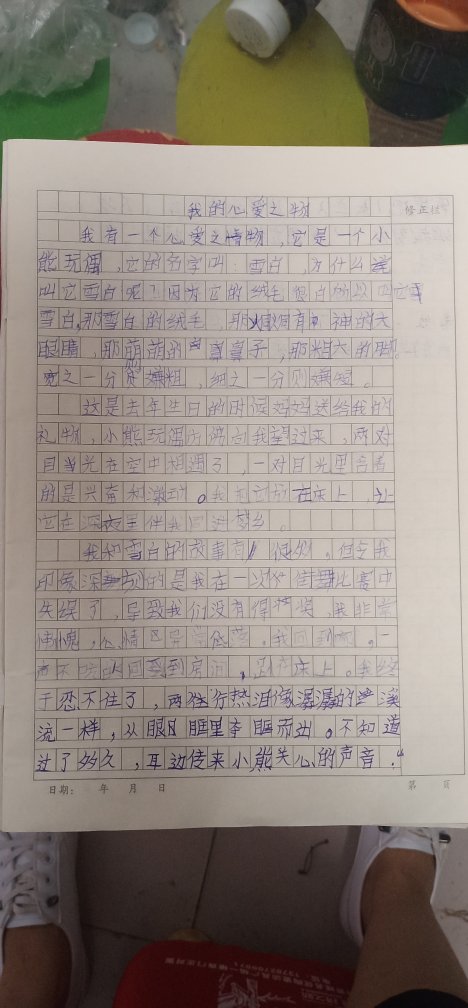 我的心爱之物
修正栏
我有一个心爱之物，它是一个小
熊玩偶，它的名字叫：雪白，为什么
叫它雪白呢？因为它的绒毛很白所以叫它雪
雪白，那雪白的绒毛，那炯炯有神的大
眼睛，那萌萌的鼻子，那粗大的脚。
宽之一分则嫌粗，细之一分则嫌短。
这是去年生日的时候妈妈送给我的
礼物，小熊玩偶仿佛向我望过来，两对
目光在空中相遇了，一对目光里含着
的是兴奋和激动。我把它放在床上，让
它在深夜里伴我回进梦乡。
我和雪白的故事有很多。但令我
印象深刻的是我在一次比赛中
失误了，导致我们没有得奖，我非常
愧，心情异常低落。我回到家，一
声不吭的回到房间，趴在床上。我终
于忍不住了，两行热泪像潺潺的溪
流一样，从眼眶里夺眶而出。不知道
过了多久，耳边传来小熊关心的声音："
日期： 年 月 日
第 页
13707709971